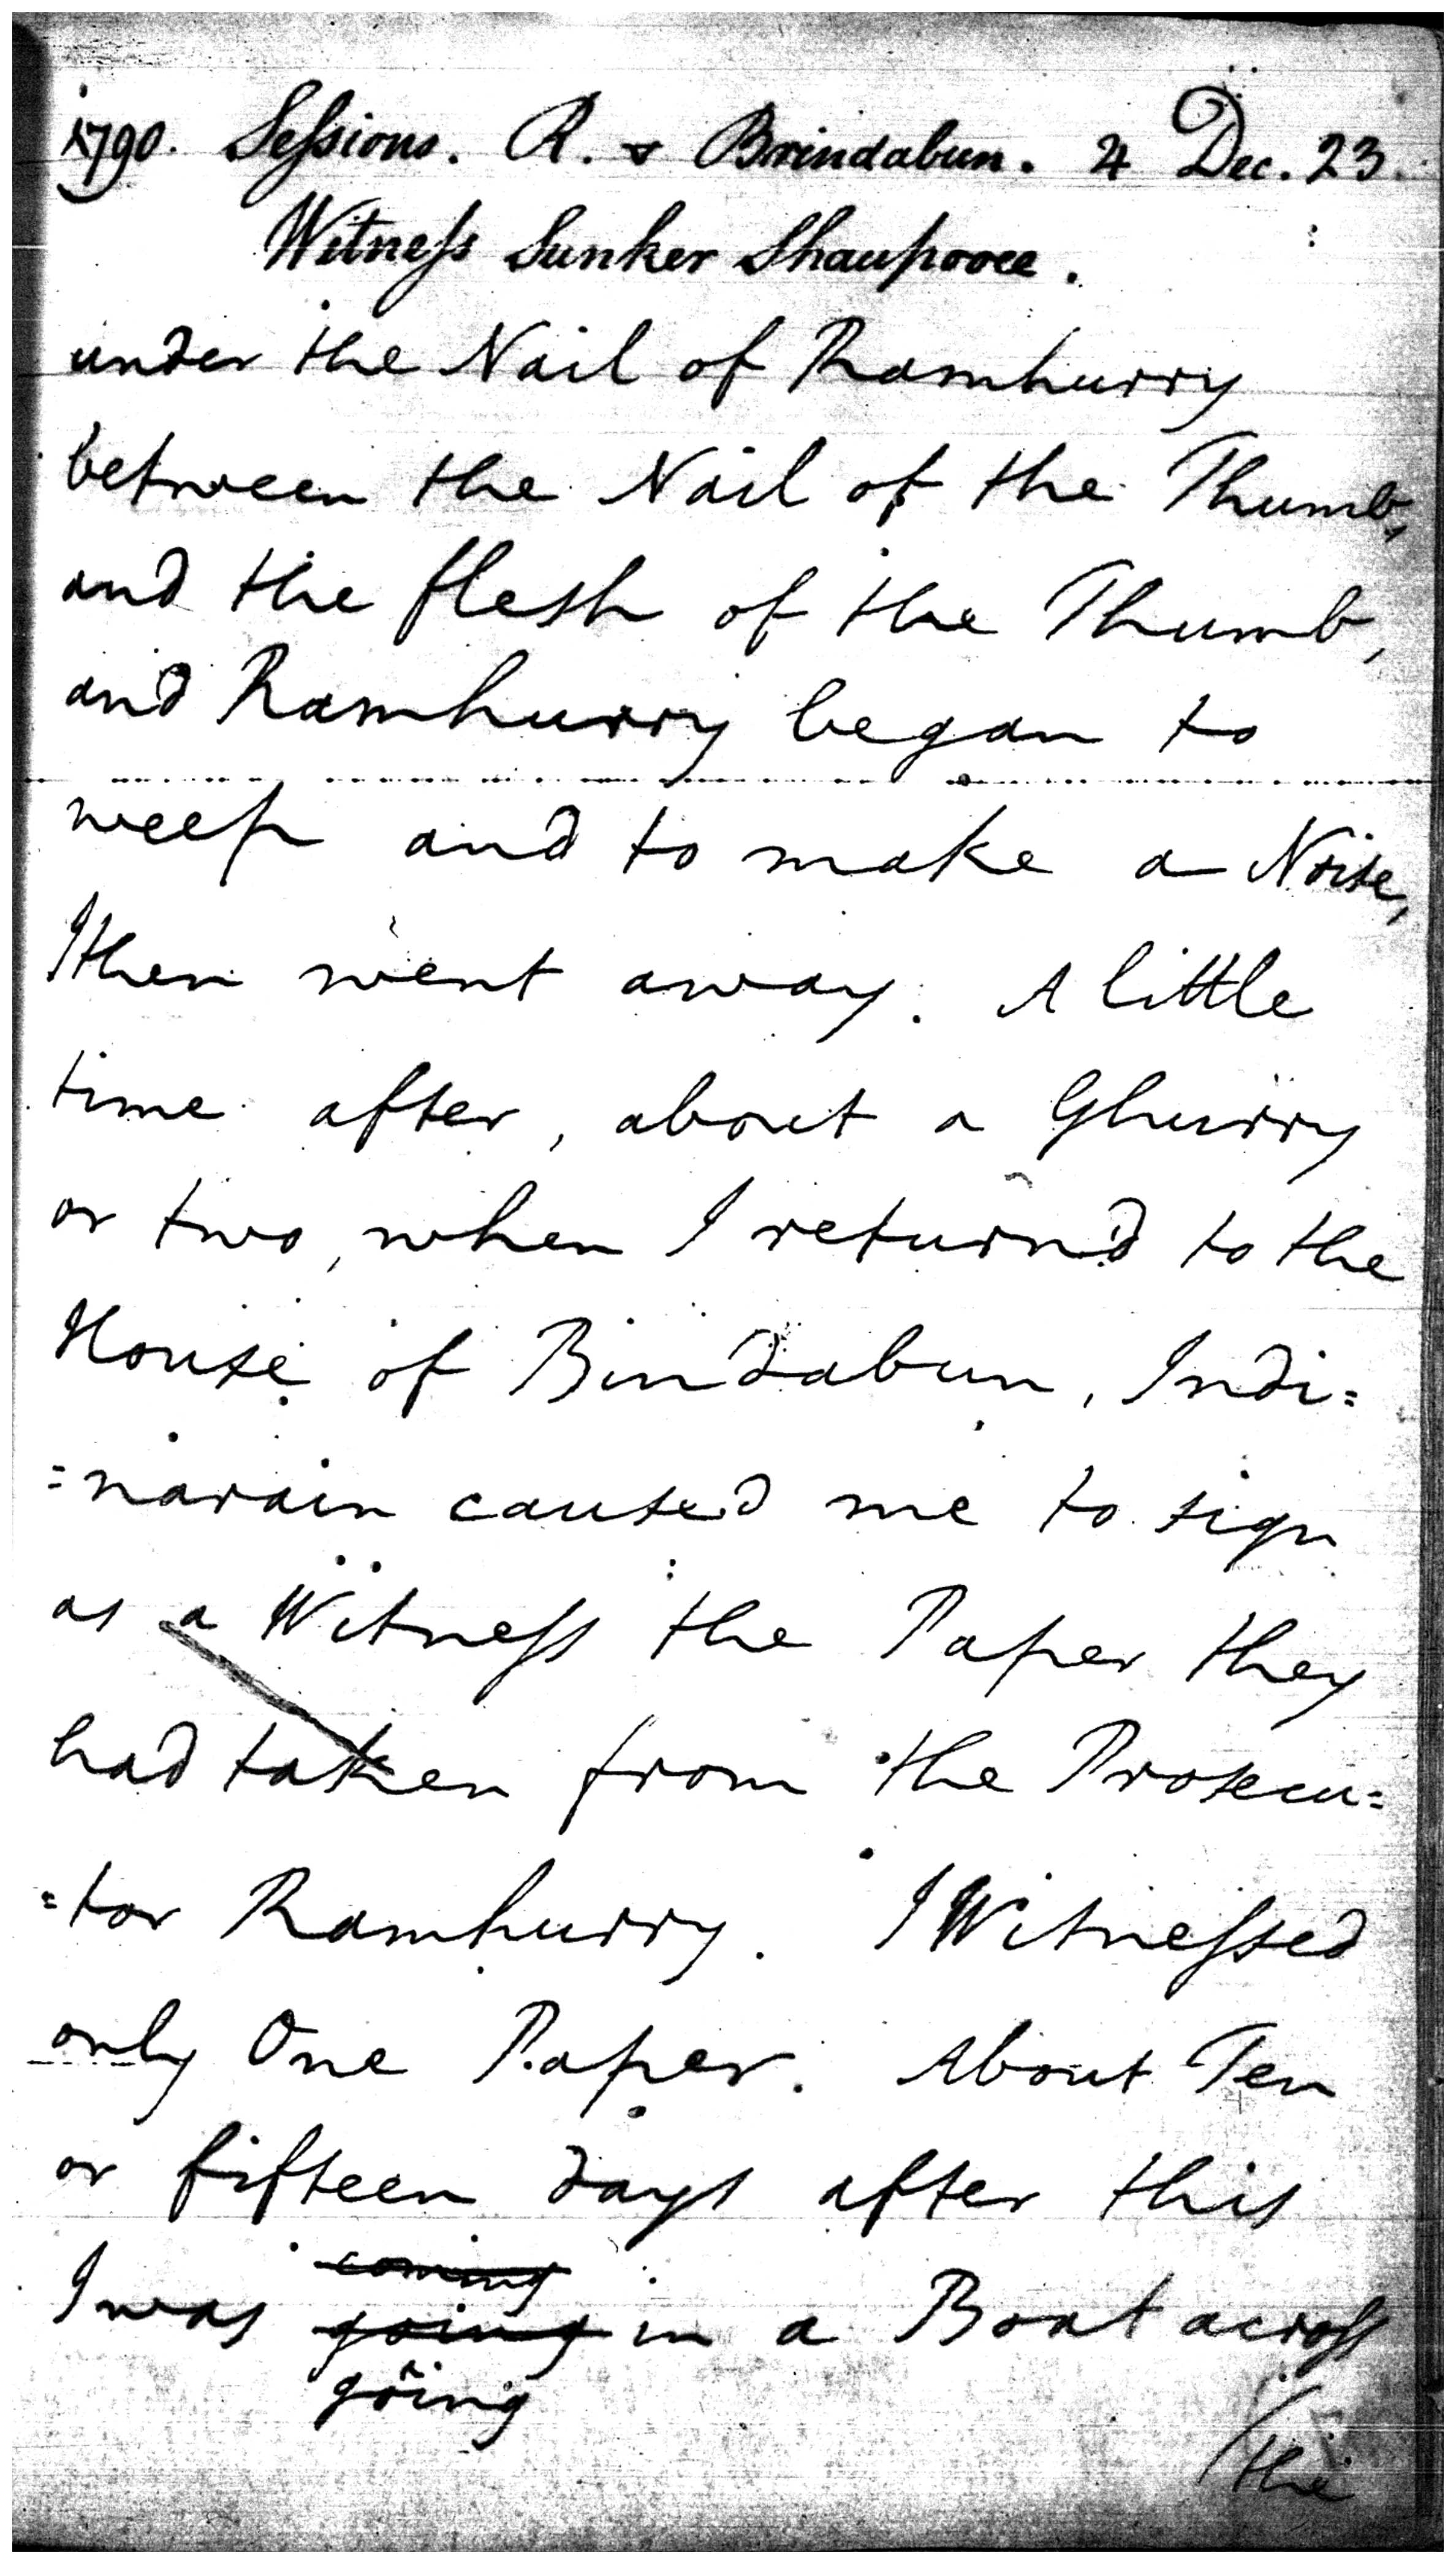 1790. Sessions. R. v Brindabun. 4 Dec. 23.
Witness Sunker Shaupooee.
under the Nail of Ramhurry
between the Nail of the Thumb,
and the flesh of the Thumb,
and Ramhurry began to
weep and to make a Noise,
I then went away. A little
time after, about a Ghurry
or two, when I return'd to the
House of Bindabun, Indi=
=narain caused me to sign
as a Witness the Paper they
had taken from the Prosecu=
=tor Ramhurry. I Witnessed
only One Paper. About Ten
or fifteen days after this
coming
I was going in a Boat across
going
the